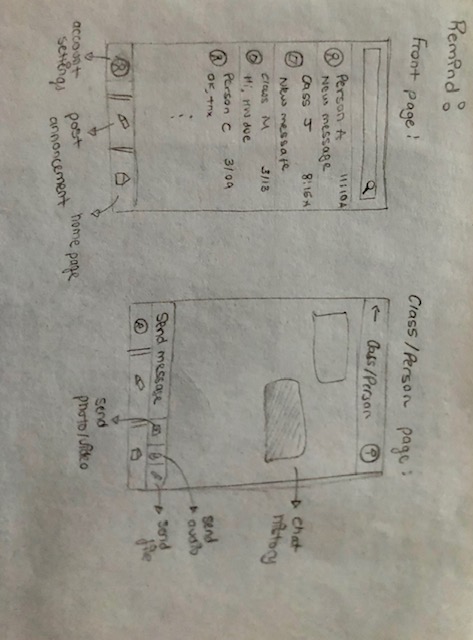 Remind:
Front page:
Person A 11:10A
New message
Cass J 8:15A
New message
Class M 3/13
Hi, HW due
Person C 3/09
OK, tnx
account settings
post annoncement
home page
Class/Person page:
← Class/Person
chat history
Send message
send photo/video
send audio
send file